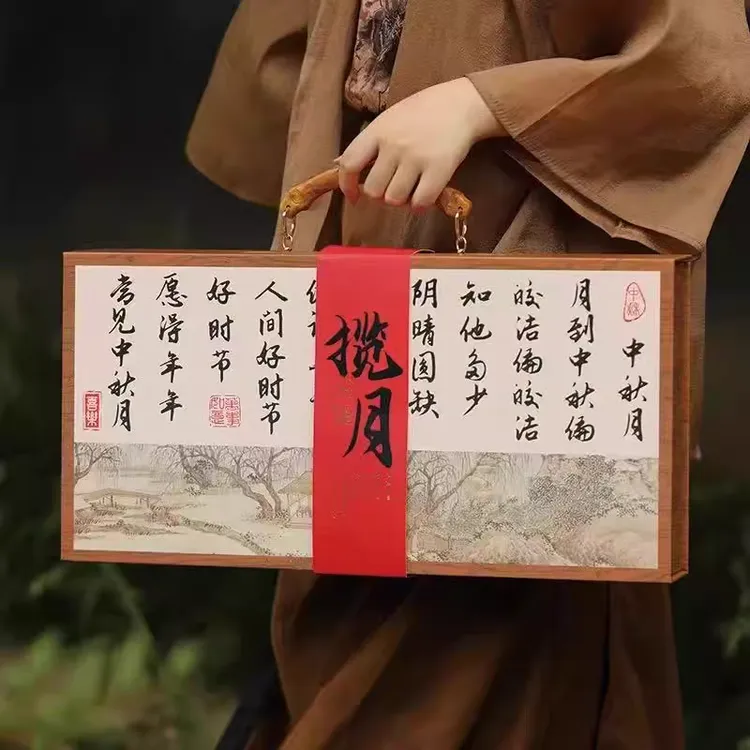 中秋月
月到中秋偏
皎洁偏皎洁
知他多少
阴晴圆缺
揽月
人间好时节
好时节
愿得年年
常见中秋月
喜樂